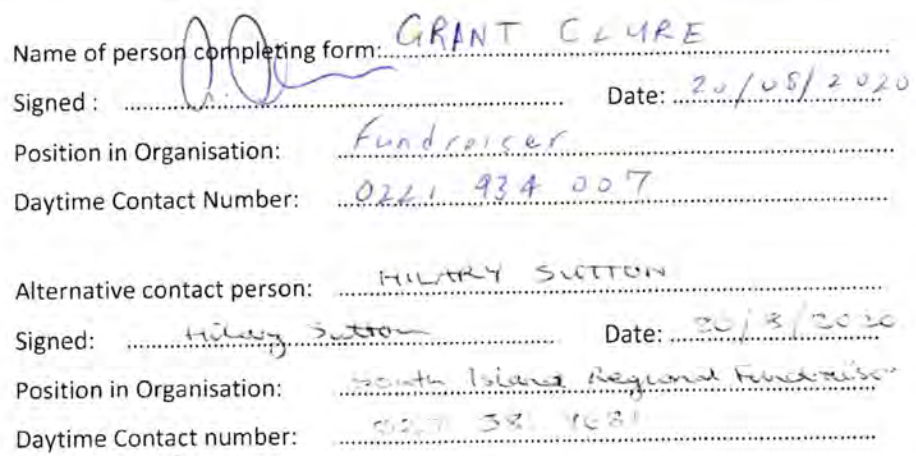 Name of person completing form: GRANT CLURE
Signed : Date: 20/08/2020
Position in Organisation: Fundraiser
Daytime Contact Number: 0221 934 007
Alternative contact person: HILARY SUTTON
Signed: Hilary Sutton Date: 20/8/2020
Position in Organisation: South Island Regional Fundraiser
Daytime Contact number: